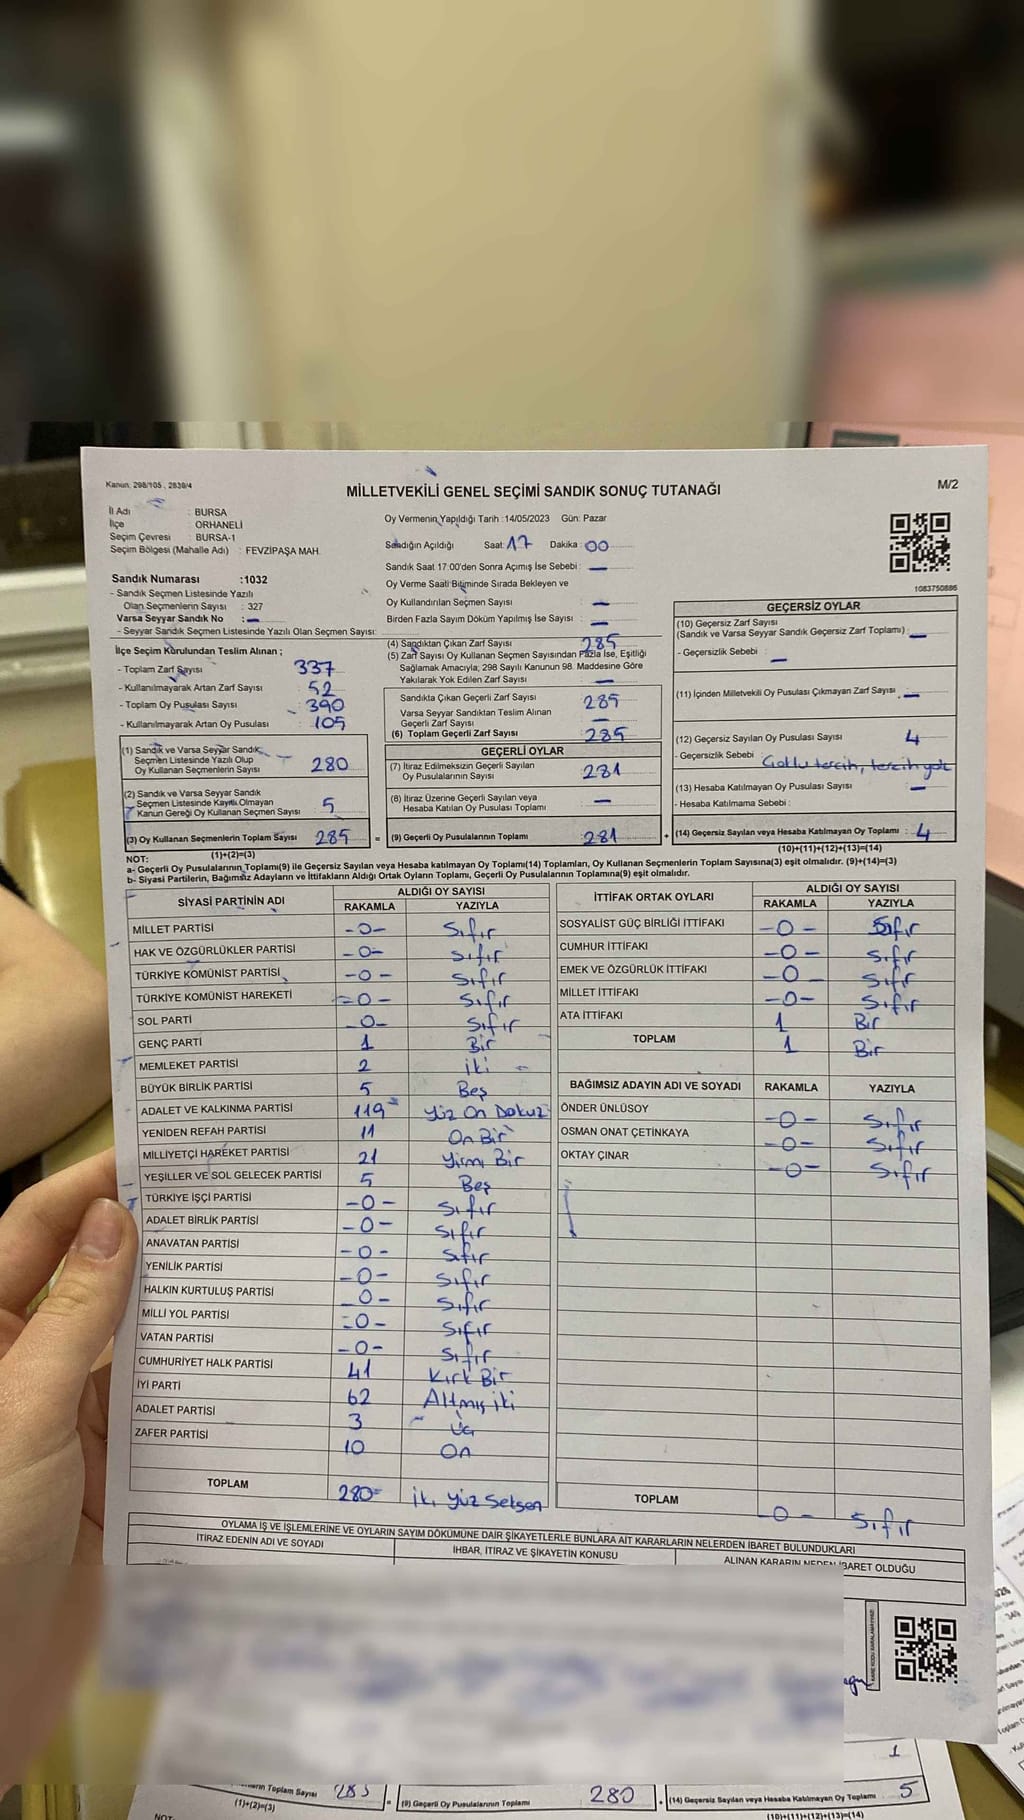 Kanun: 298/105 , 2839/4
MİLLETVEKİLİ GENEL SEÇİMİ SANDIK SONUÇ TUTANAĞI
M/2
İl Adı : BURSA
İlçe : ORHANELİ
Seçim Çevresi : BURSA-1
Seçim Bölgesi (Mahalle Adı) : FEVZİPAŞA MAH.
Oy Vermenin Yapıldığı Tarih :14/05/2023 Gün: Pazar
Sandığın Açıldığı Saat: 17 Dakika: 00
Sandık Saat 17:00'den Sonra Açımış İse Sebebi : —
Oy Verme Saati Bitiminde Sırada Bekleyen ve
Oy Kullandırılan Seçmen Sayısı —
Birden Fazla Sayım Döküm Yapılmış İse Sayısı : —
1083750886
Sandık Numarası :1032
- Sandık Seçmen Listesinde Yazılı
Olan Seçmenlerin Sayısı : 327
Varsa Seyyar Sandık No : —
- Seyyar Sandık Seçmen Listesinde Yazılı Olan Seçmen Sayısı:
İlçe Seçim Kurulundan Teslim Alınan ;
- Toplam Zarf Sayısı 337
- Kullanılmayarak Artan Zarf Sayısı : 52
- Toplam Oy Pusulası Sayısı : 390
- Kullanılmayarak Artan Oy Pusulası : 105
(1) Sandık ve Varsa Seyyar Sandık
Seçmen Listesinde Yazılı Olup
Oy Kullanan Seçmenlerin Sayısı 280
(2) Sandık ve Varsa Seyyar Sandık
Seçmen Listesinde Kayıtlı Olmayan
Kanun Gereği Oy Kullanan Seçmen Sayısı 5
(3) Oy Kullanan Seçmenlerin Toplam Sayısı 285 =
(1)+(2)=(3)
(4) Sandıktan Çıkan Zarf Sayısı 285
(5) Zarf Sayısı Oy Kullanan Seçmen Sayısından Fazla İse, Eşitliği
Sağlamak Amacıyla; 298 Sayılı Kanunun 98. Maddesine Göre
Yakılarak Yok Edilen Zarf Sayısı —
Sandıkta Çıkan Geçerli Zarf Sayısı 285
Varsa Seyyar Sandıktan Teslim Alınan
Geçerli Zarf Sayısı —
(6) Toplam Geçerli Zarf Sayısı 285
GEÇERLİ OYLAR
(7) İtiraz Edilmeksizin Geçerli Sayılan
Oy Pusulalarının Sayısı 281
(8) İtiraz Üzerine Geçerli Sayılan veya
Hesaba Katılan Oy Pusulası Toplamı —
(9) Geçerli Oy Pusulalarının Toplamı 281 +
GEÇERSİZ OYLAR
(10) Geçersiz Zarf Sayısı
(Sandık ve Varsa Seyyar Sandık Geçersiz Zarf Toplamı) —
- Geçersizlik Sebebi : —
(11) İçinden Milletvekili Oy Pusulası Çıkmayan Zarf Sayısı —
(12) Geçersiz Sayılan Oy Pusulası Sayısı 4
- Geçersizlik Sebebi : Çoklu tercih, tercih yok
(13) Hesaba Katılmayan Oy Pusulası Sayısı —
- Hesaba Katılmama Sebebi :
(14) Geçersiz Sayılan veya Hesaba Katılmayan Oy Toplamı : 4
(10)+(11)+(12)+(13)=(14)
NOT:
a- Geçerli Oy Pusulalarının Toplamı(9) ile Geçersiz Sayılan veya Hesaba katılmayan Oy Toplamı(14) Toplamları, Oy Kullanan Seçmenlerin Toplam Sayısına(3) eşit olmalıdır. (9)+(14)=(3)
b- Siyasi Partilerin, Bağımsız Adayların ve İttifakların Aldığı Ortak Oyların Toplamı, Geçerli Oy Pusulalarının Toplamına(9) eşit olmalıdır.
SİYASİ PARTİNİN ADI ALDIĞI OY SAYISI
RAKAMLA YAZIYLA
MİLLET PARTİSİ -0- Sıfır
HAK VE ÖZGÜRLÜKLER PARTİSİ -0- Sıfır
TÜRKİYE KOMÜNİST PARTİSİ -0- Sıfır
TÜRKİYE KOMÜNİST HAREKETİ -0- Sıfır
SOL PARTİ -0- Sıfır
GENÇ PARTİ 1 Bir
MEMLEKET PARTİSİ 2 İki
BÜYÜK BİRLİK PARTİSİ 5 Beş
ADALET VE KALKINMA PARTİSİ 119 Yüz On Dokuz
YENİDEN REFAH PARTİSİ 11 On Bir
MİLLİYETÇİ HAREKET PARTİSİ 21 Yirmi Bir
YEŞİLLER VE SOL GELECEK PARTİSİ 5 Beş
TÜRKİYE İŞÇİ PARTİSİ -0- Sıfır
ADALET BİRLİK PARTİSİ -0- Sıfır
ANAVATAN PARTİSİ -0- Sıfır
YENİLİK PARTİSİ -0- Sıfır
HALKIN KURTULUŞ PARTİSİ -0- Sıfır
MİLLİ YOL PARTİSİ -0- Sıfır
VATAN PARTİSİ -0- Sıfır
CUMHURİYET HALK PARTİSİ 41 Kırk Bir
İYİ PARTİ 62 Altmış iki
ADALET PARTİSİ 3 Üç
ZAFER PARTİSİ 10 On
TOPLAM 280 İki Yüz Seksen
İTTİFAK ORTAK OYLARI ALDIĞI OY SAYISI
RAKAMLA YAZIYLA
SOSYALİST GÜÇ BİRLİĞİ İTTİFAKI -0- Sıfır
CUMHUR İTTİFAKI -0- Sıfır
EMEK VE ÖZGÜRLÜK İTTİFAKI -0- Sıfır
MİLLET İTTİFAKI -0- Sıfır
ATA İTTİFAKI 1 Bir
TOPLAM 1 Bir
BAĞIMSIZ ADAYIN ADI VE SOYADI RAKAMLA YAZIYLA
ÖNDER ÜNLÜSOY -0- Sıfır
OSMAN ONAT ÇETİNKAYA -0- Sıfır
OKTAY ÇINAR -0- Sıfır
TOPLAM -0- Sıfır
OYLAMA İŞ VE İŞLEMLERİNE VE OYLARIN SAYIM DÖKÜMÜNE DAİR ŞİKAYETLERLE BUNLARA AİT KARARLARIN NELERDEN İBARET BULUNDUKLARI
İTİRAZ EDENİN ADI VE SOYADI İHBAR, İTİRAZ VE ŞİKAYETİN KONUSU ALINAN KARARIN NEDEN İBARET OLDUĞU
1
Toplam Sayısı 285 = (9) Geçerli Oy Pusulalarının Toplamı 280 + (14) Geçersiz Sayılan veya Hesaba Katılmayan Oy Toplamı 5
(1)+(2)=(3) (10)+(11)+(12)+(13)=(14)
NOT: